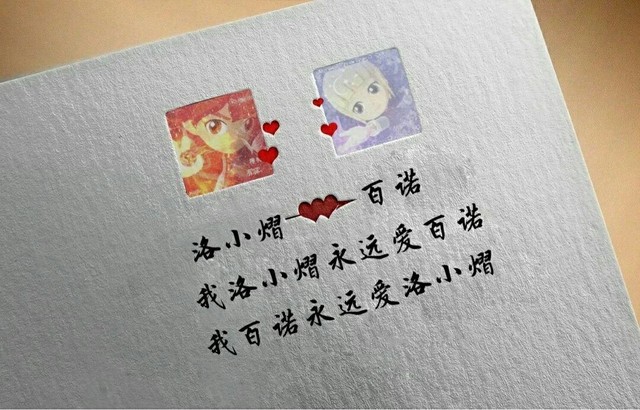 洛小熠 百诺
我洛小熠永远爱百诺
我百诺永远爱洛小熠